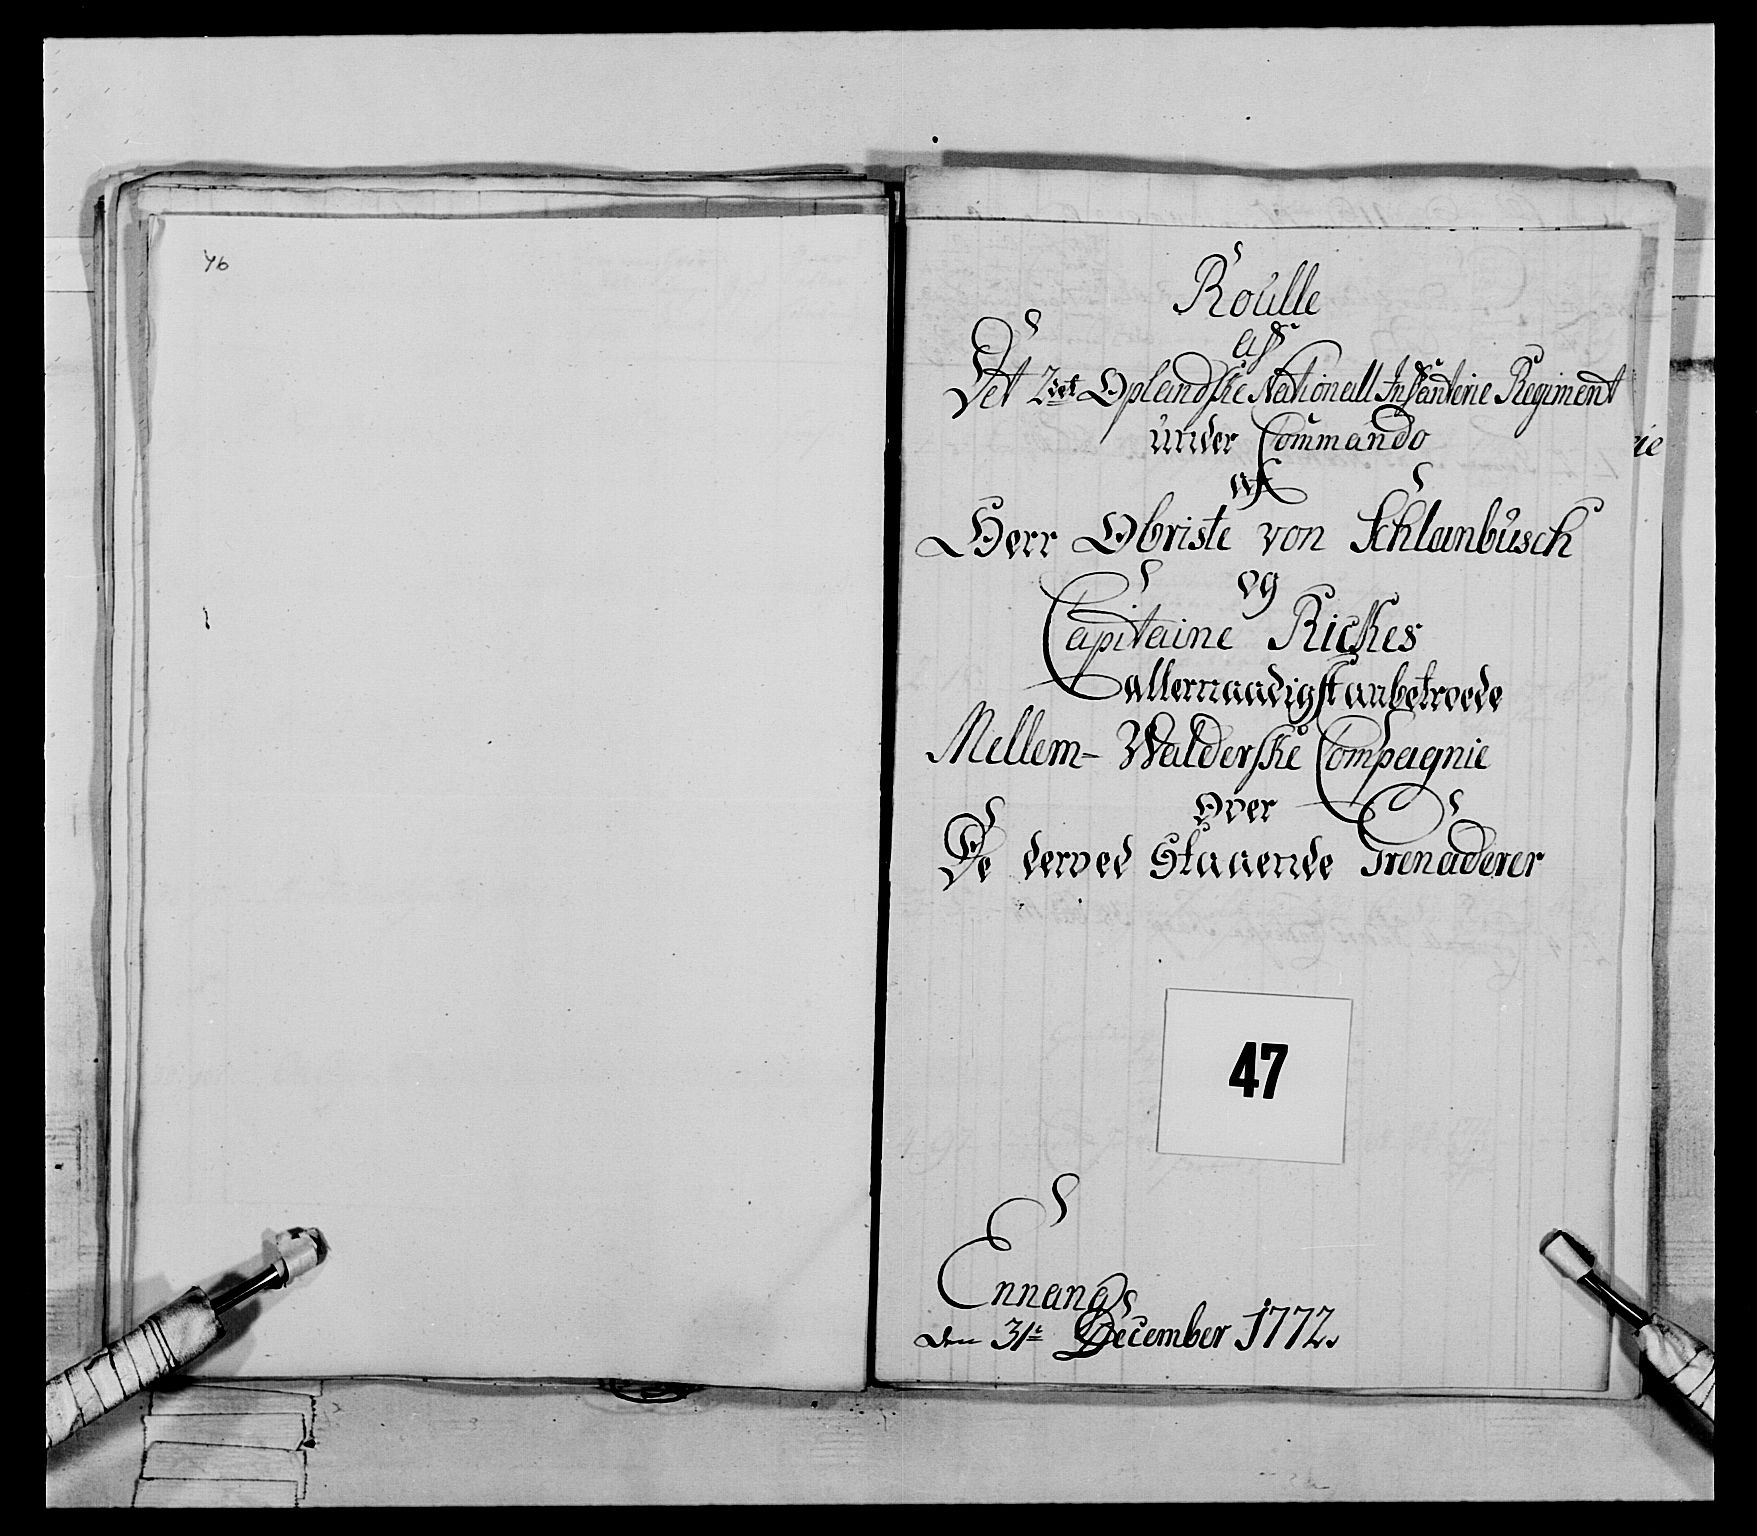 46
Roulle
aff
Det 2det Oplandske Nationall Infanterie Regiment
under Commando
af
Herr Obriste von Schlanbusch
og
Capitaine Rickes
allernaadigst anbetroede
Mellem- Walderske Compagnie
over
De derved Staaende Grenaderer
47
Ennang
den 31te December 1772.